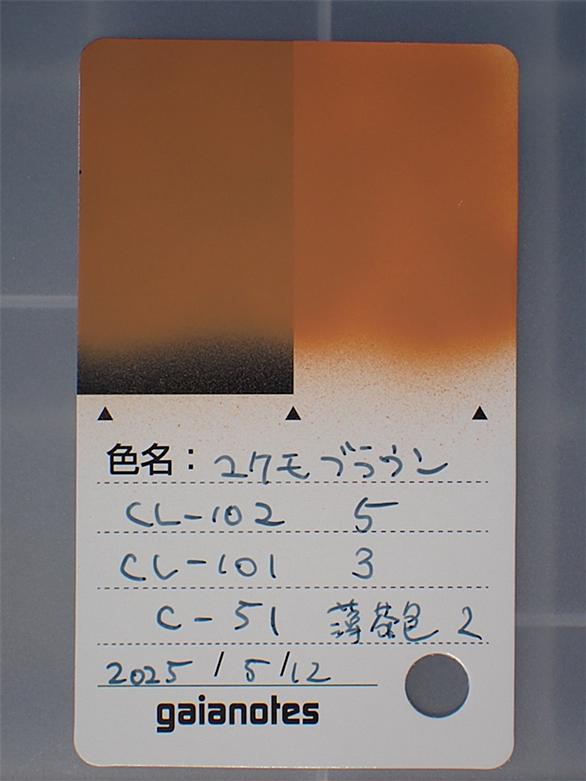 色名：コクモブラウン
CL-102 5
CL-101 3
C-51 薄茶色 2
2025/5/12
gaianotes